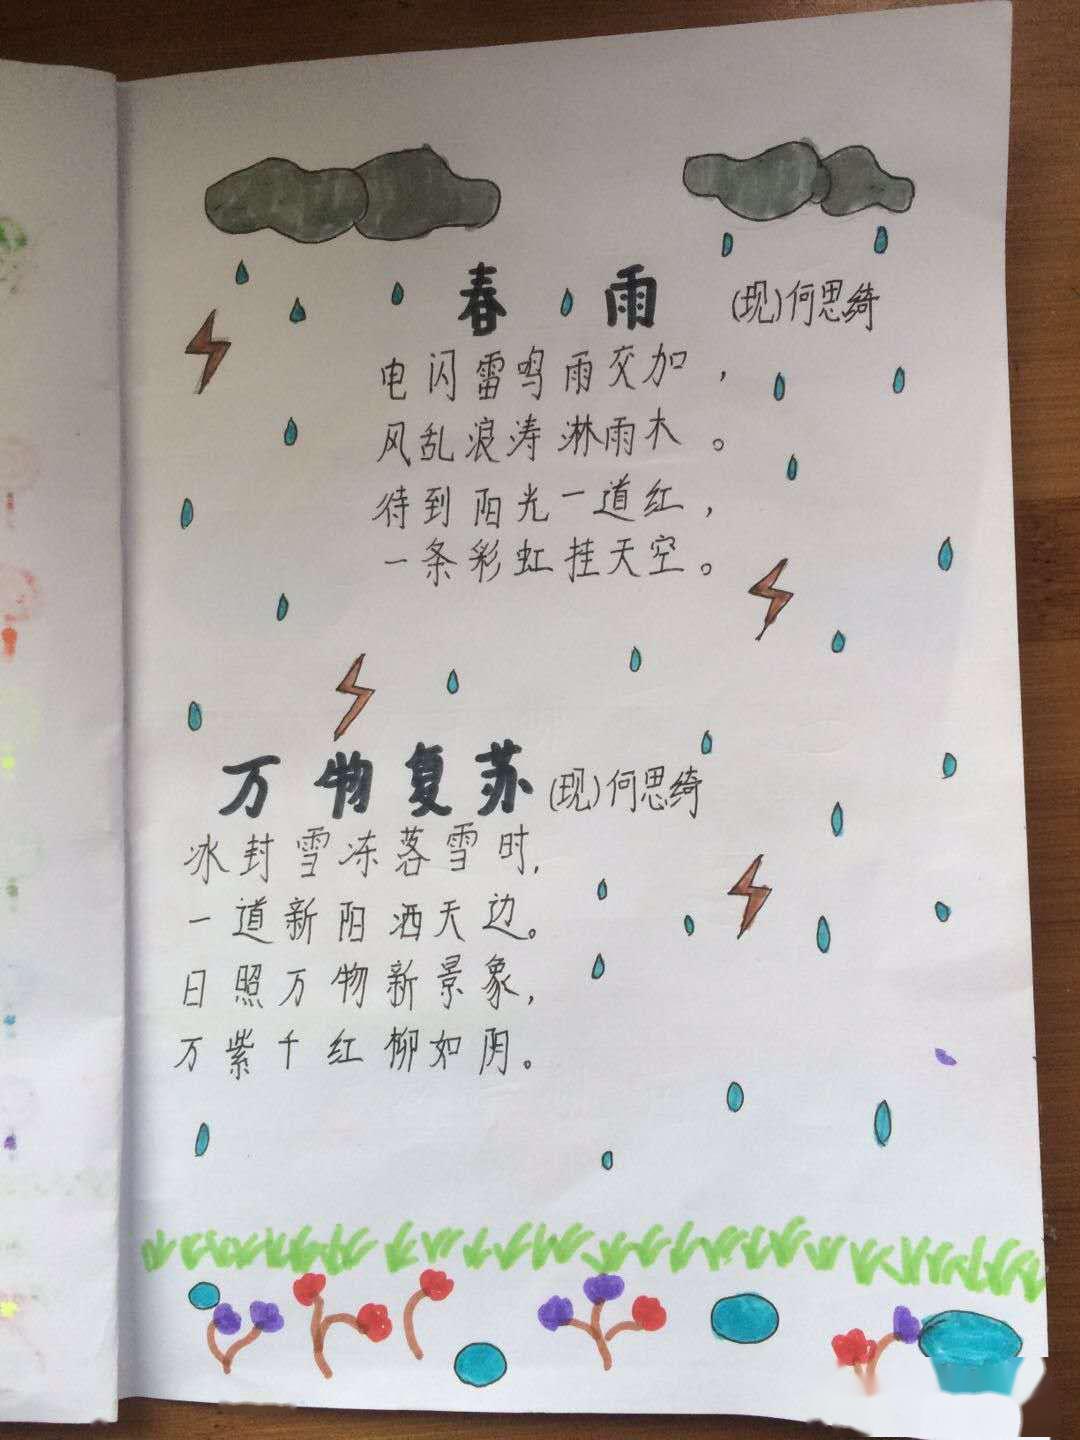 春 雨 (现)何思绮
电闪雷鸣雨交加，
风乱浪涛淋雨木。
待到阳光一道红，
一条彩虹挂天空。
万物复苏 (现)何思绮
冰封雪冻落雪时，
一道新阳洒天边。
日照万物新景象，
万紫千红柳如阴。